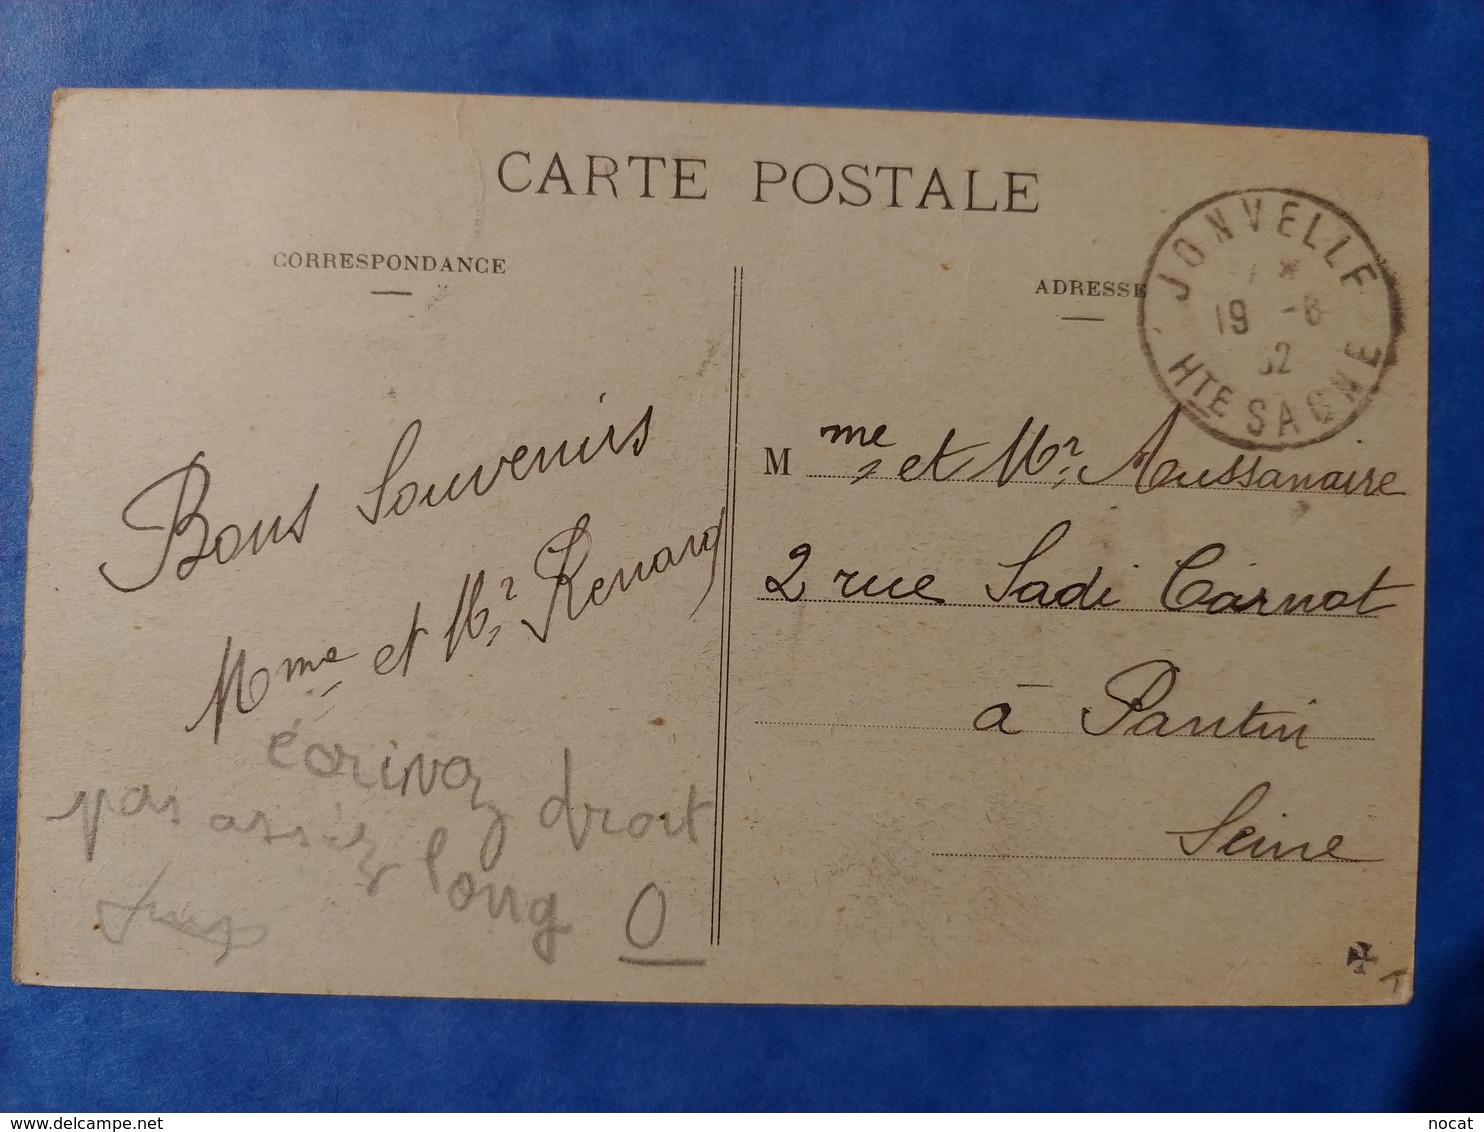 CARTE POSTALE
CORRESPONDANCE
ADRESSE
JONVELLE
19 -8
32
HTE SAONE
Bons Souvenirs
Mme et Mr Renard
écrivez droit
pas assez long 0
M me et Mr Aussanaire
2 rue Sadi Carnot
à Pantin
Seine
nocat